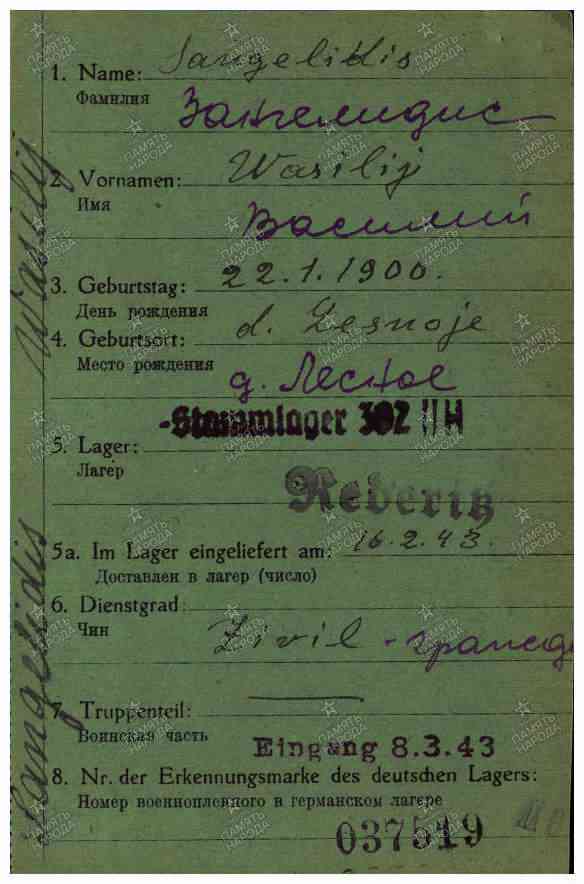 1. Name: Sangelidis
Фамилия Зангелидис
2. Vornamen: Wasilij
Имя Василий
3. Geburtstag: 22.1.1900.
День рождения
4. Geburtsort: d. Lesnoje
Место рождения д. Лесное
-Stammlager 302 II H
5. Lager:
Лагерь
Rederitz
5a. Im Lager eingeliefert am: 16.2.43.
Доставлен в лагер (число)
6. Dienstgrad:
Чин Zivil - гражд
7. Truppenteil: —
Воинская часть
Eingang 8.3.43
8. Nr. der Erkennungsmarke des deutschen Lagers:
Номер военнопленного в германском лагере
037519
Sangelidis Wasilij
ПАМЯТЬ НАРОДА